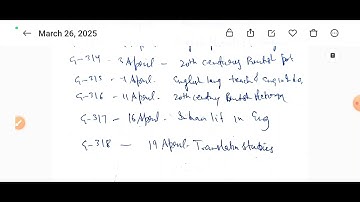 March 26, 2025
G-314 - 3 April - 20th century British
G-315 - April - English lang
G-316 - 11 April - 20th century British
G-317 - 16 April - Indian lit in Eng
G-318 - 19 April - Translation studies